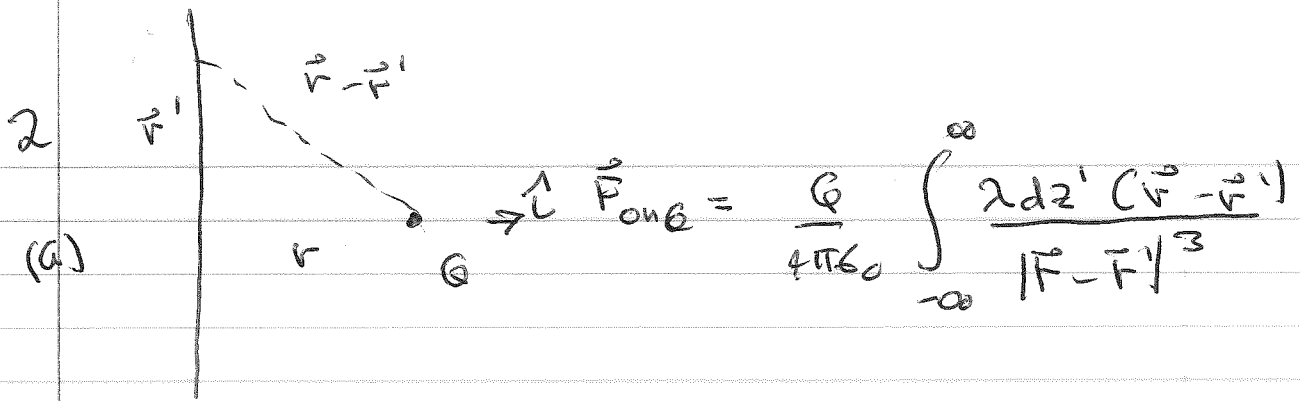 2
(a)
r⃗ - r⃗'
r⃗'
r
Q
→ î
F⃗ on Q = Q / 4πε₀ ∫_{-∞}^{∞} λ dz' (r⃗ - r⃗') / |r⃗ - r⃗'|³